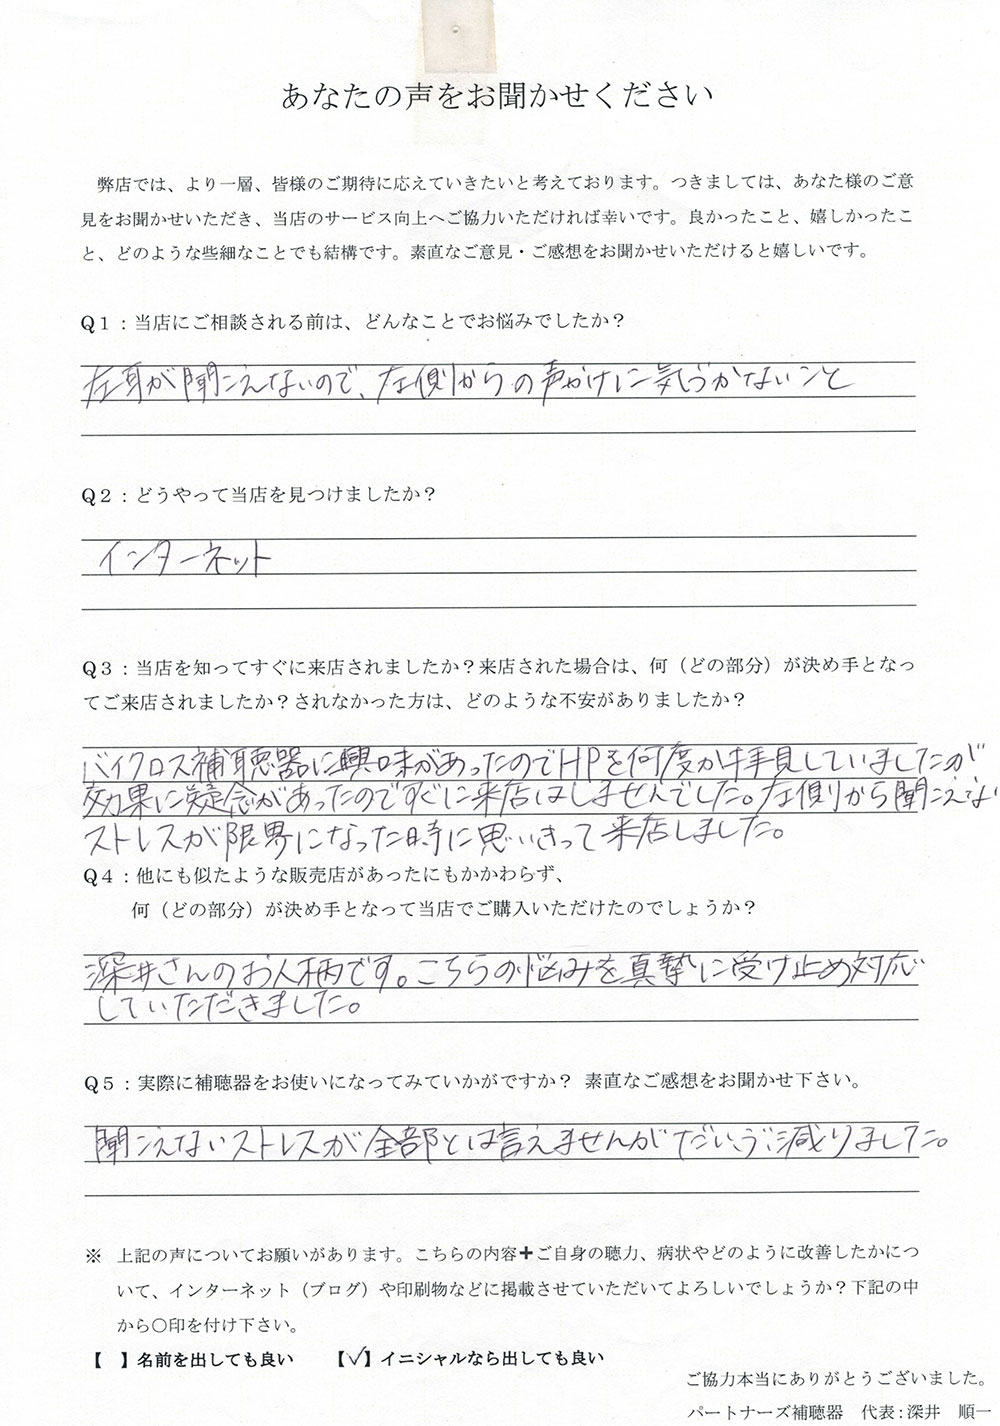 あなたの声をお聞かせください
弊店では、より一層、皆様のご期待に応えていきたいと考えております。つきましては、あなた様のご意
見をお聞かせいただき、当店のサービス向上へご協力いただければ幸いです。良かったこと、嬉しかったこ
と、どのような些細なことでも結構です。素直なご意見・ご感想をお聞かせいただけると嬉しいです。
Q1:当店にご相談される前は、どんなことでお悩みでしたか？
左耳が聞こえないので、左側からの声かけに気づかないこと
Q2:どうやって当店を見つけましたか？
インターネット
Q3:当店を知ってすぐに来店されましたか？来店された場合は、何（どの部分）が決め手となっ
てご来店されましたか？されなかった方は、どのような不安がありましたか？
バイクロス補聴器に興味があったのでHPを何度か拝見していましたが
効果に疑念があったのですぐに来店はしませんでした。左側から聞こえない
ストレスが限界になった時に思いきって来店しました。
Q4:他にも似たような販売店があったにもかかわらず、
何（どの部分）が決め手となって当店でご購入いただけたのでしょうか？
深井さんのお人柄です。こちらの悩みを真摯に受け止め対応
していただきました。
Q5:実際に補聴器をお使いになってみていかがですか？ 素直なご感想をお聞かせ下さい。
聞こえないストレスが全部とは言えませんがだいぶ減りました。
※ 上記の声についてお願いがあります。こちらの内容+ご自身の聴力、病状やどのように改善したかにつ
いて、インターネット（ブログ）や印刷物などに掲載させていただいてよろしいでしょうか？下記の中
から〇印を付け下さい。
【 】名前を出しても良い 【✓】イニシャルなら出しても良い
ご協力本当にありがとうございました。
パートナーズ補聴器 代表:深井 順一